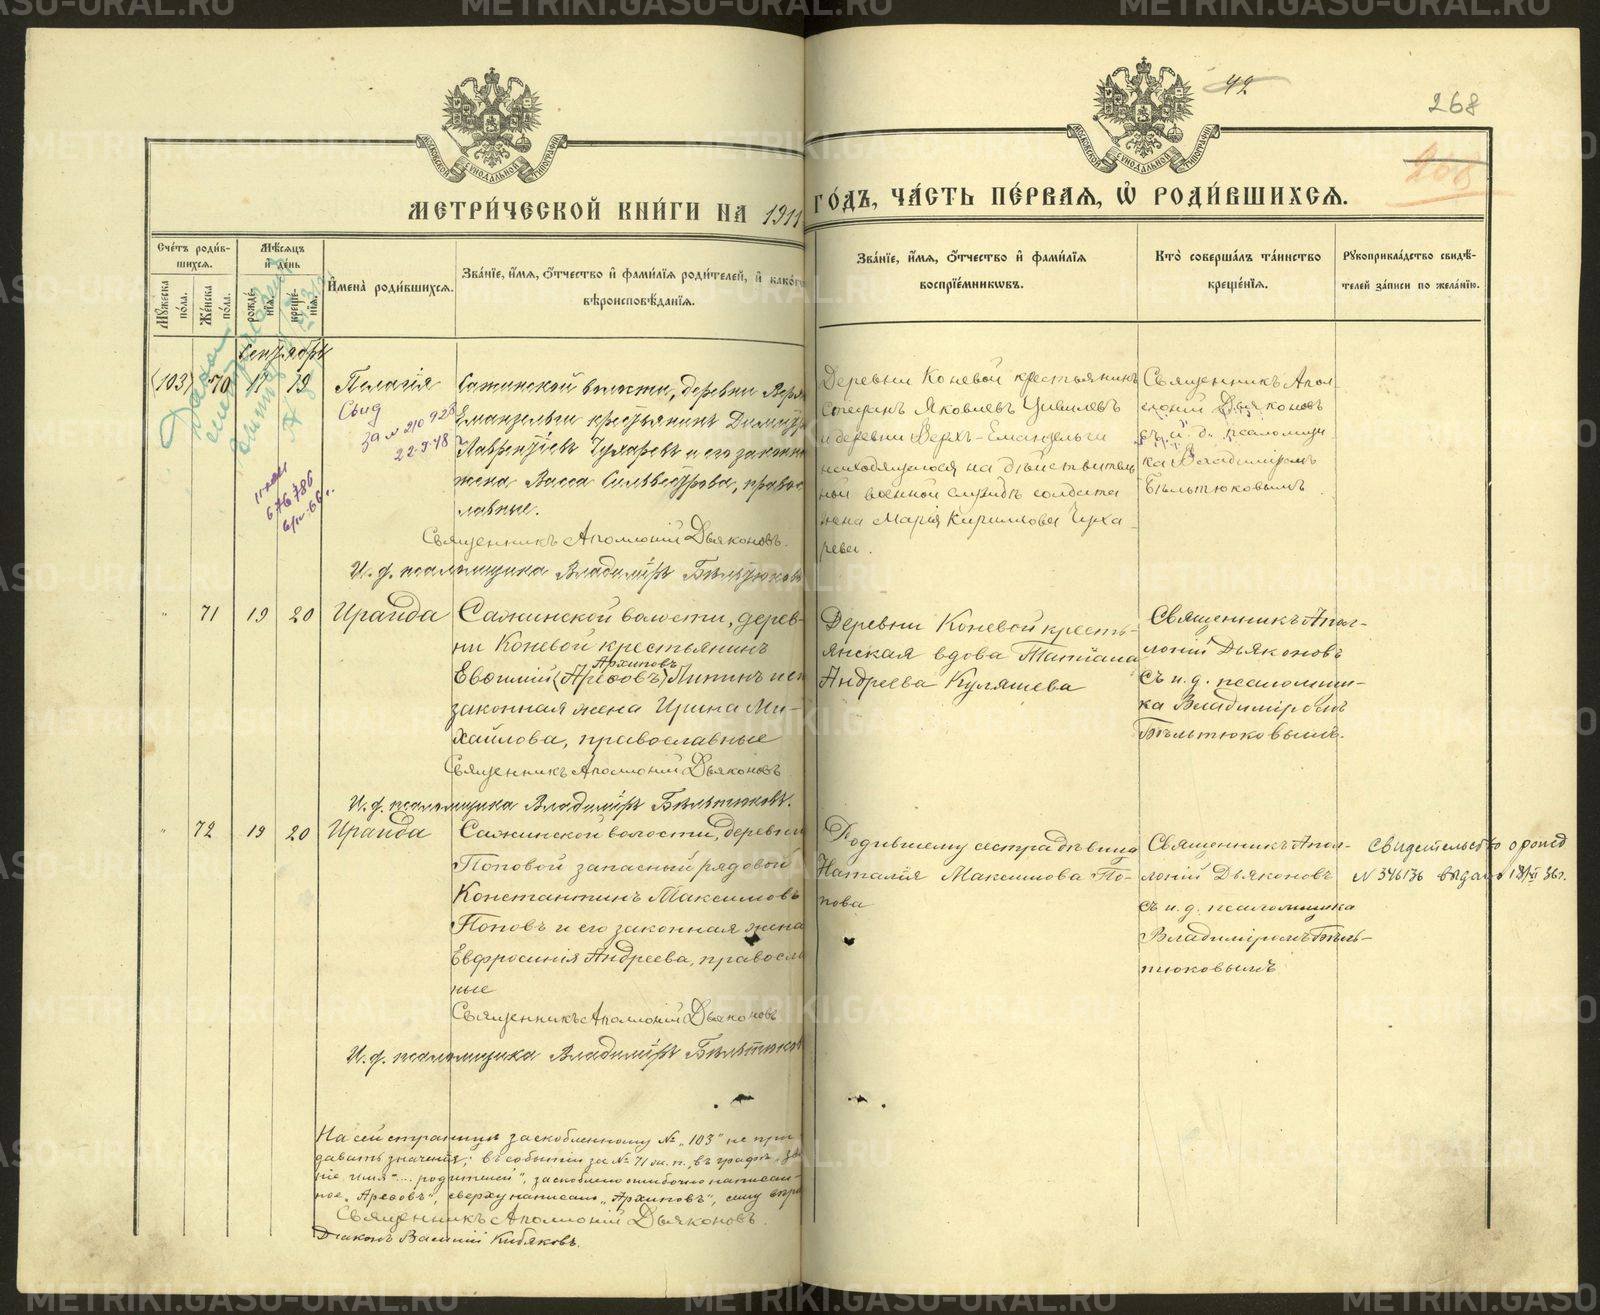 42
268
МЕТРИ́ЧЕСКОЙ КНИ́ГИ НА 1911 ГО́ДЪ, ЧА́СТЬ ПЕ́РВАЯ, Ѡ҆ РОДИ́ВШИХСЯ.
МОСКОВСКОЙ СѴНОДАЛЬНОЙ ТИПОГРАФІИ
МОСКОВСКОЙ СѴНОДАЛЬНОЙ ТИПОГРАФІИ
Сче́тъ роди́вшихся.
Мꙋ́жеска по́ла.
Же́нска по́ла.
Мѣ́сяцъ и҆ де́нь
рожде́нія.
креще́нія.
И҆мена̀ роди́вшихся.
Зва́ніе, и҆́мя, ѻ҆́тчество и҆ фами́лія роди́телей, и҆ како́гѡ
вѣроисповѣ́данія.
Зва́ніе, и҆́мя, ѻ҆́тчество и҆ фами́лія
воспріе́мникѡвъ.
Кто̀ соверша́лъ та́инство
креще́нія.
Рꙋкоприкла́дство свидѣ́-
телей за́писи по жела́нію.
Сентябрь
(103) 70 17 19 Пелагія
Свид
за № 210928
22-9-48
676786
Сажинской волости, деревни Верхъ
Емангельги крестьянинъ Димитрій
Лаврентіевъ Чухаревъ и его законная
жена Васса Сильвестрова, правос-
лавные.
Священникъ Аполлоній Дьяконовъ.
И. д. псаломщика Владиміръ Бѣльтюковъ
Деревни Коневой крестьянинъ
Стефанъ Яковлевъ
и деревни Верхъ-Емангельги
находящегося на дѣйствитель
ной военной службѣ солдата
жена Марія Кириллова Чуха-
рева.
Священникъ Апол-
лоній Дьяконовъ
съ и. д. псаломщи
ка Владиміромъ
Бѣльтюковымъ
" 71 19 20 Ираида
Сажинской волости, дерев-
ни Коневой крестьянинъ
Архиповъ
Евѳимій (Арефовъ) Липинъ и его
законная жена Ирина Ми-
хайлова, православные
Священникъ Аполлоній Дьяконовъ
И. д. псаломщика Владиміръ Бѣльтюковъ.
Деревни Коневой кресть-
янская вдова Татіана
Андреева Куляшева
Священникъ Апол-
лоній Дьяконовъ
съ и. д. псаломщи-
ка Владиміромъ
Бѣльтюковымъ.
" 72 19 20 Ираида
Сажинской волости, деревни
Поповой запасный рядовой
Константинъ Максимовъ
Поповъ и его законная жена
Евфросинія Андреева, правосла
ные
Священникъ Аполлоній Дьяконовъ
И. д. псаломщика Владиміръ Бѣльтюковъ
Родившему сестра дѣвица
Наталія Максимова По-
пова
Священникъ Апол-
лоній Дьяконовъ
съ и. д. псаломщика
Владиміромъ Бѣль-
тюковымъ
Свидетельство о рожд
№ 346136 выдано
На сей страницѣ заскобленному № "103" не при
давать значенія; въ событіи за № 71 ж. п., въ графѣ "зва
ніе имя.... родителей", заскоблено ошибочно написан-
ное "Арефовъ", сверху написано "Архиповъ", сему вѣрить
Священникъ Аполлоній Дьяконовъ.
Діаконъ Василій Кибяковъ.
METRIKI.GASO-URAL.RU